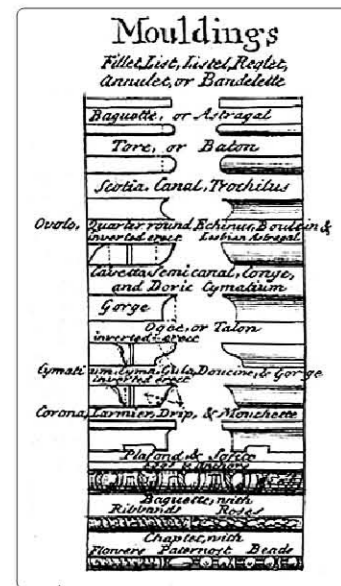 Mouldings
Fillet, List, Listel, Reglet,
Annulet, or Bandelette
Baguette, or Astragal
Tore, or Baton
Scotia, Canal, Trochilus
Ovolo, Quarter round, Echinus, Boultin &
inverted erect Lesbian Astragal
Cavetto Semicanal, Conge,
and Doric Cymatium
Gorge
Ogee, or Talon
inverted erect
Cymatium, Cyma, Gula, Doucine, & Gorge
inverted erect
Corona, Larmier, Drip, & Mouchette
Plafond, & Sofito
Eggs & Anchors
Baguette, with
Ribbands Roses
Chaplet, with
Flowers Paternost Beads